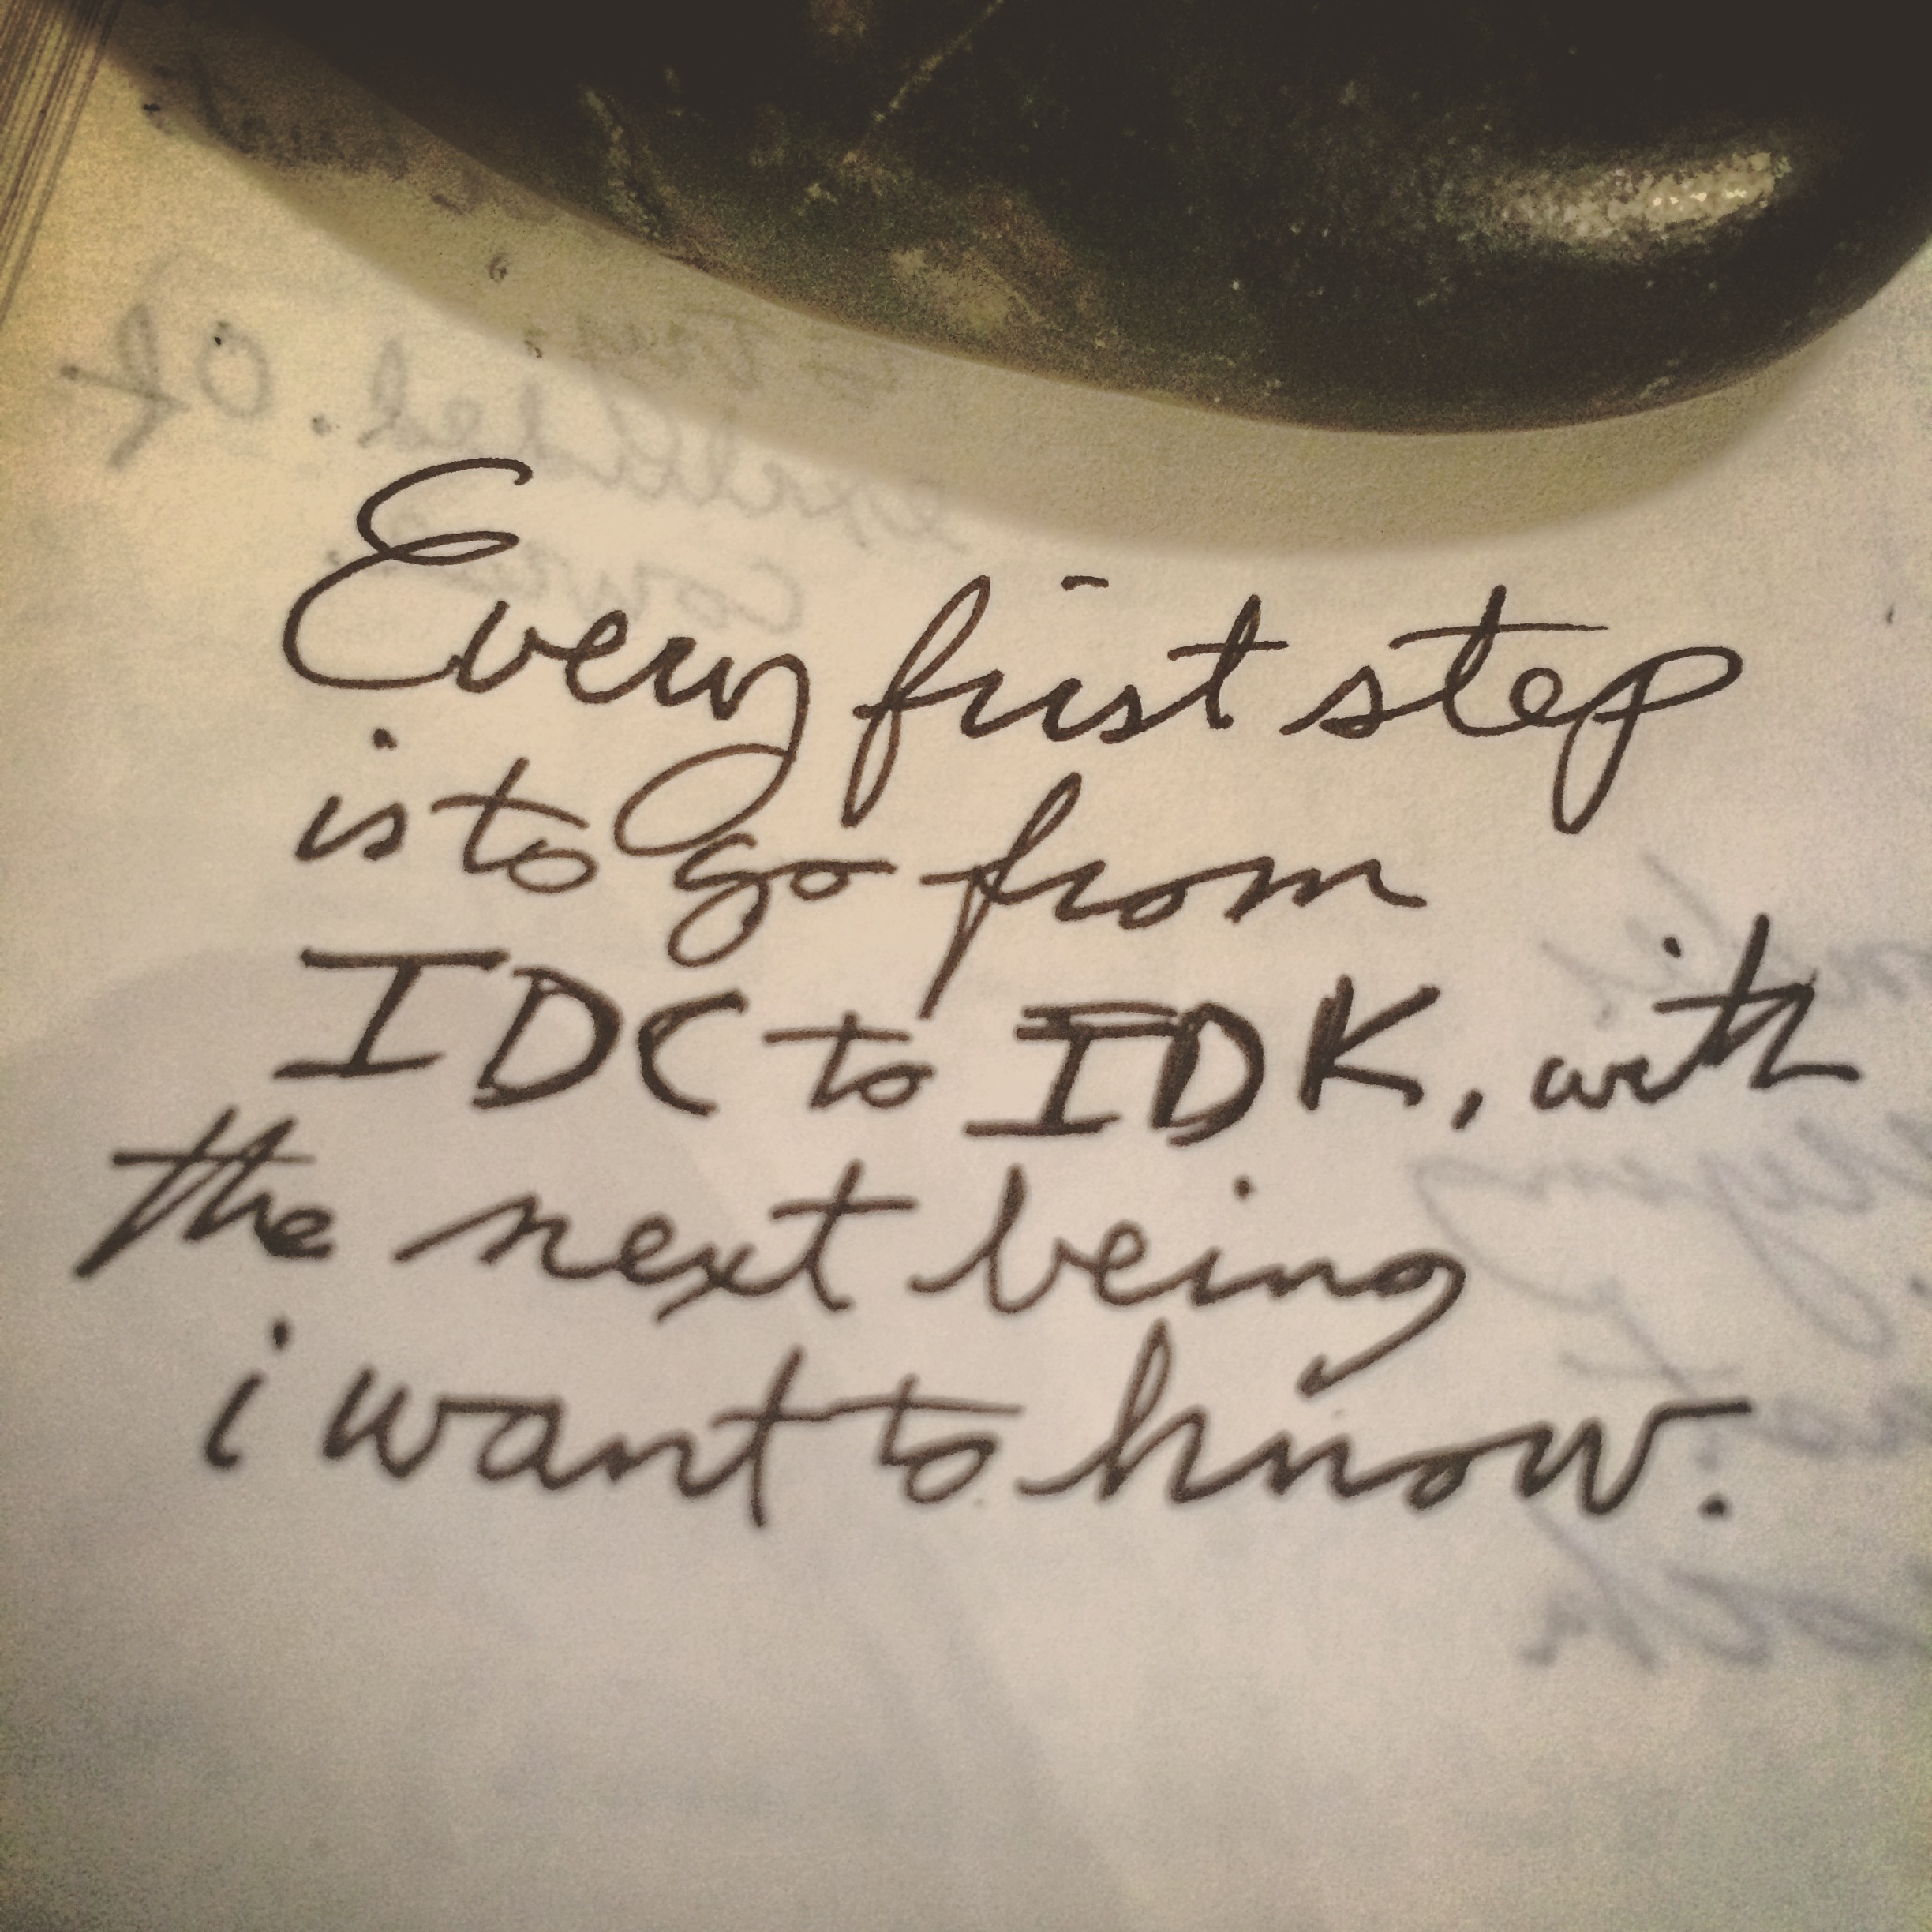 Every first step
is to go from
IDC to IDK, with
the next being
i want to know.